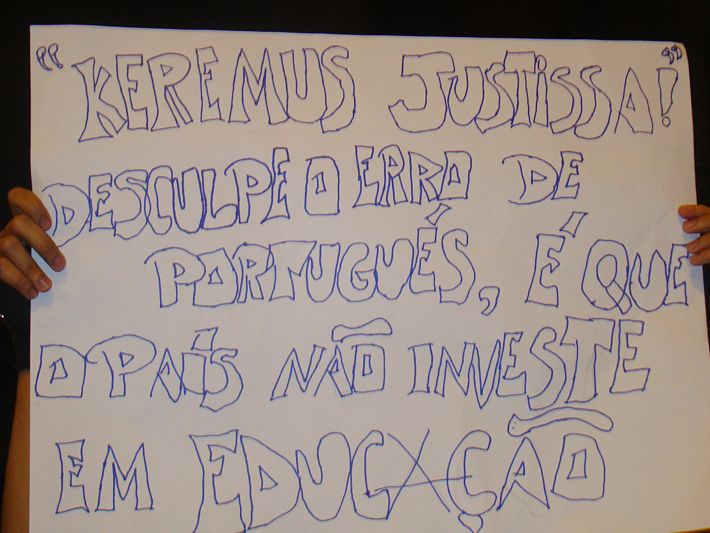 "KEREMUS JUSTISSA!"
DESCULPE O ERRO DE
PORTUGUÊS, É QUE
O PAÍS NÃO INVESTE
EM EDUCAÇÃO